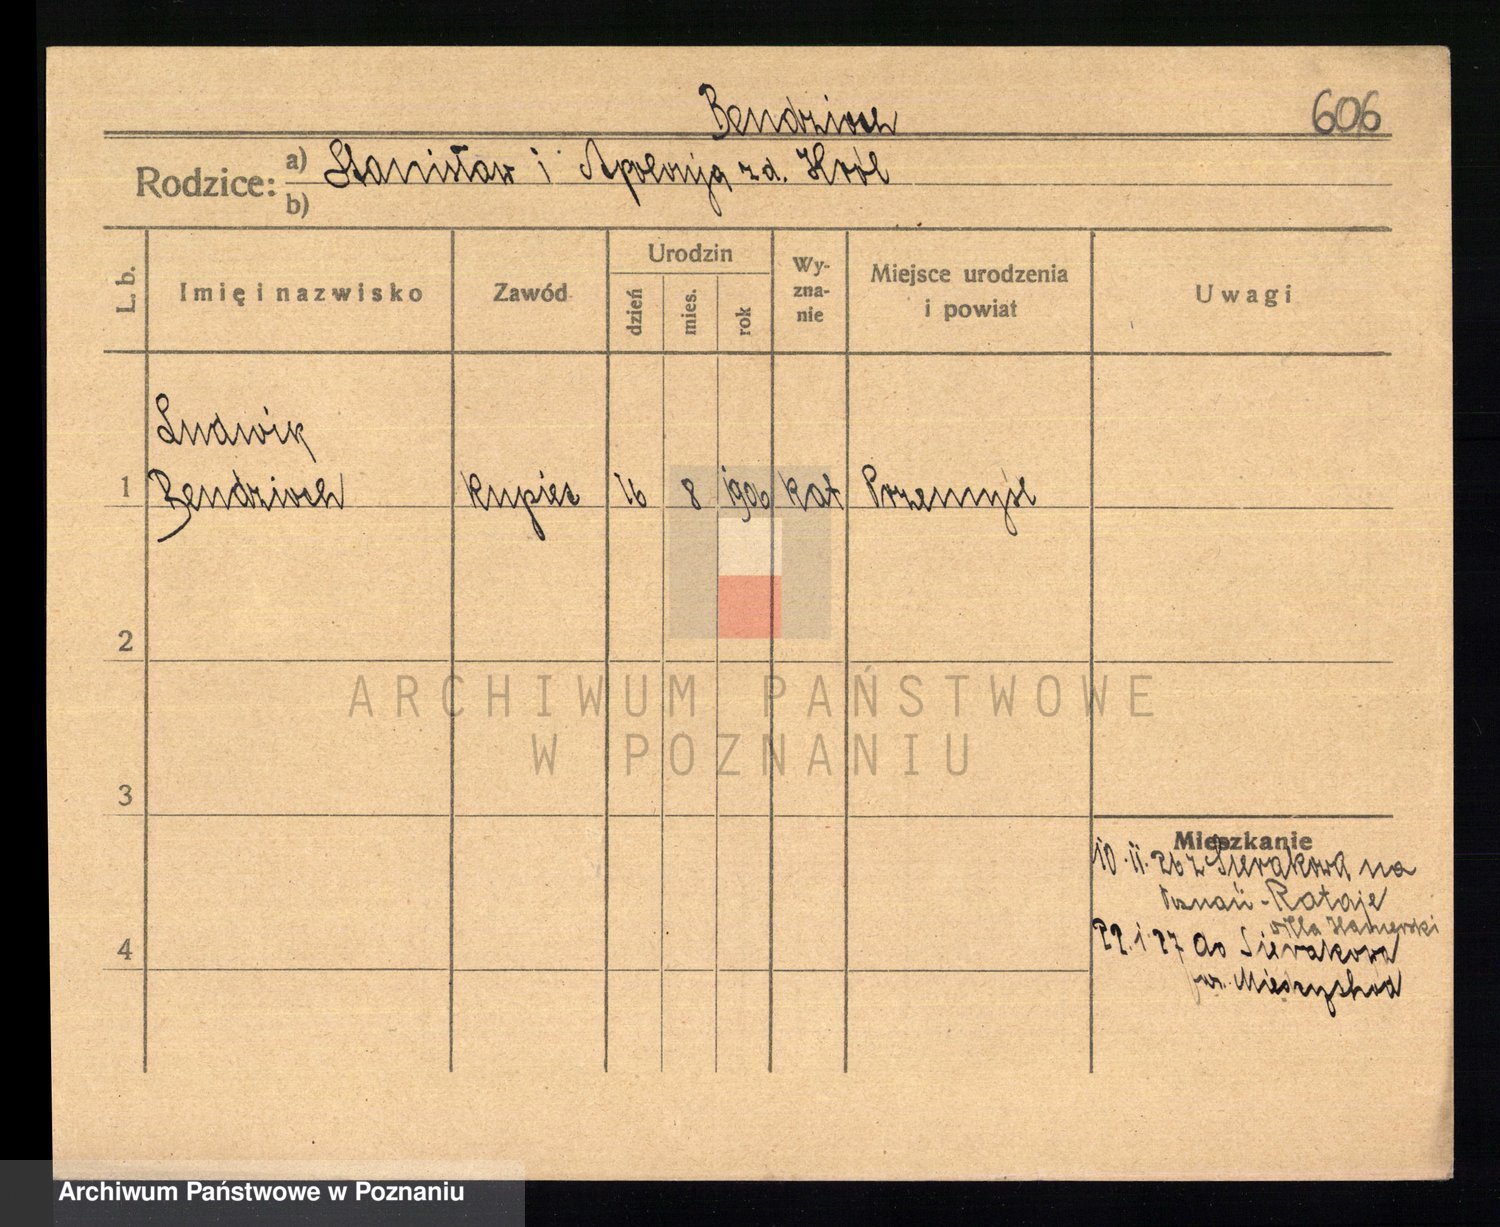 Bendzioch
606
Rodzice: a) Stanisław i Apolonja zd. Król
b)
L. b.
Imię i nazwisko
Zawód
Urodzin
dzień
mies.
rok
Wy-
zna-
nie
Miejsce urodzenia
i powiat
Uwagi
Ludwik
1 Bendzioch kupiec 16 8 1906 kat Przemyśl
2
ARCHIWUM PAŃSTWOWE
W POZNANIU
3
Mieszkanie
10.11.26 z Sierakowa na
Poznań-Rataje
villa
4
22.1.27 do Sierakowa
Miedzychód
Archiwum Państwowe w Poznaniu